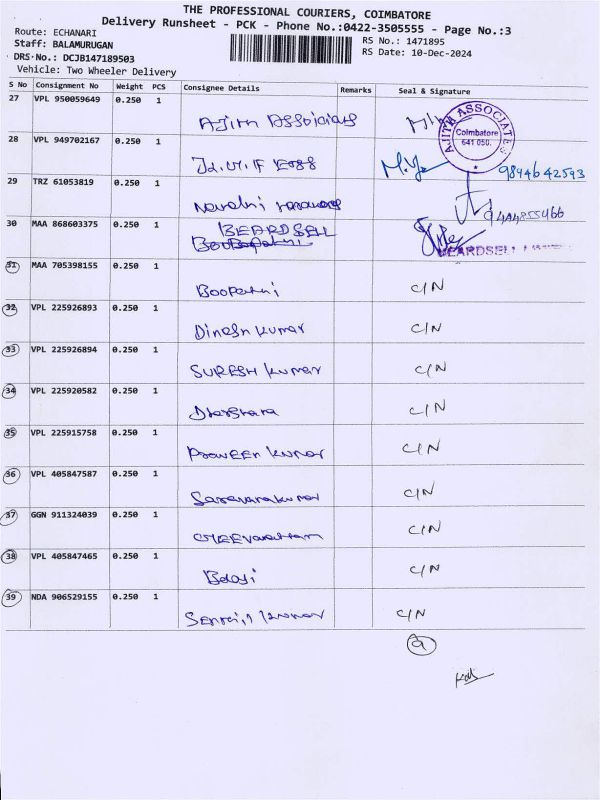 THE PROFESSIONAL COURIERS, COIMBATORE
Delivery Runsheet - PCK - Phone No.:0422-3505555 - Page No.:3
Route: ECHANARI
Staff: BALAMURUGAN
DRS-No.: DCJB147189503
Vehicle: Two Wheeler Delivery
RS No.: 1471895
RS Date: 10-Dec-2024
S No Consignment No Weight PCS Consignee Details Remarks Seal & Signature
27 VPL 950059649 0.250 1
AJITH ASSOCIATES Coimbatore 641 050.
28 VPL 949702167 0.250 1
9894642593
29 TRZ 61053819 0.250 1
9444855466
30 MAA 868603375 0.250 1 BEARDSELL
BEARDSELL
31 MAA 705398155 0.250 1 Boopathi C/N
32 VPL 225926893 0.250 1 Dinesh Kumar C/N
33 VPL 225926894 0.250 1 SURESH Kumar C/N
34 VPL 225920582 0.250 1 C/N
35 VPL 225915758 0.250 1 Praveen Kumar C/N
36 VPL 405847587 0.250 1 Saravanakumar C/N
37 GGN 911324039 0.250 1 C/N
38 VPL 405847465 0.250 1 Balaji C/N
39 NDA 906529155 0.250 1 Senthil Kumar C/N
9